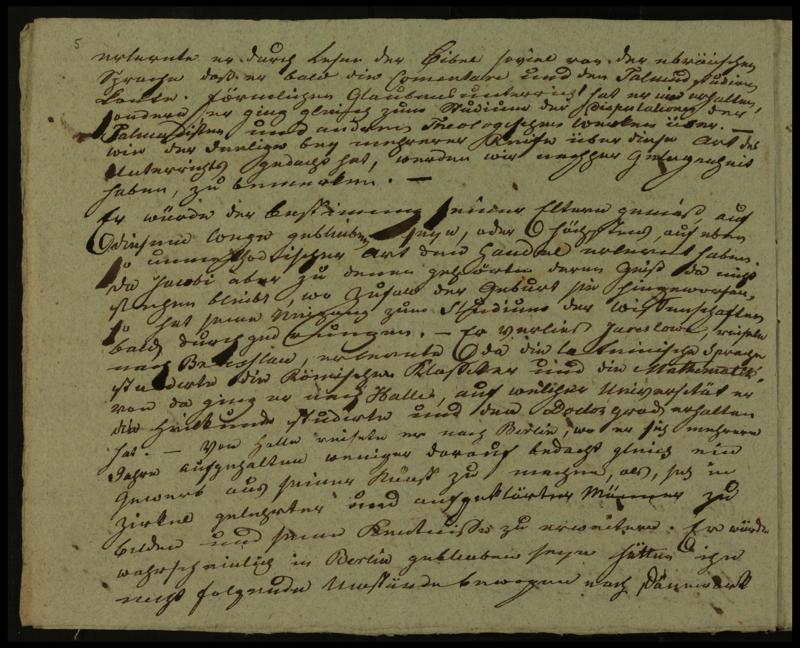 5
erlernte er durch lesen der Bibel soviel von der ebräischen
Sprache daß er bald die Comentare und den Talmud studiren
konte. förmlichen Glaubensunterricht hat er nie erhalten,
sondern er ging gleich zum Studium der Dissertationen der
Talmudisten und andern Theologischen werken über. —
wie der Seelige bey mehrerer Reife über diese Art des
Unterrichts gedacht hat, werden wir nachher Gelegenheit
haben, zu bemerken. —
Er würde der bestimmung seiner Eltern gemäß, auf
diesem wege geblieben seyn, oder höchstens auf eben
so unmethodischer Art den Handel erlernt haben.
Da Jacobi aber zu denen gehörte deren Geist da nicht
stehen bleibt, wo Zufall der Geburt sie hingeworfen,
so hat seine Neigung zum Studium der Wissenschaften
bald durchgedrungen. — Er verlies Jareslow, reisete
nach Breßlau, erlernte da die lateinische Sprache
studirte die Römischen Klassiker und die Mathematik,
von da ging er nach Halle, auf welcher Universität er
die Heilkunde studirte und den Doctorgrad erhalten
hat. — Von Halle reisete er nach Berlin, wo er sich mehrere
Jahre aufgehalten weniger darauf bedacht gleich ein
Gewerb aus seiner Kunst zu machen, als, sich in
Zirkel gelehrter und aufgeklärter Männer zu
bilden und seine Kentnisse zu erweitern. Er würde
wahrscheinlich in Berlin geblieben seyn hätten ihn
nicht folgende Umstände bewogen nach Dännemark